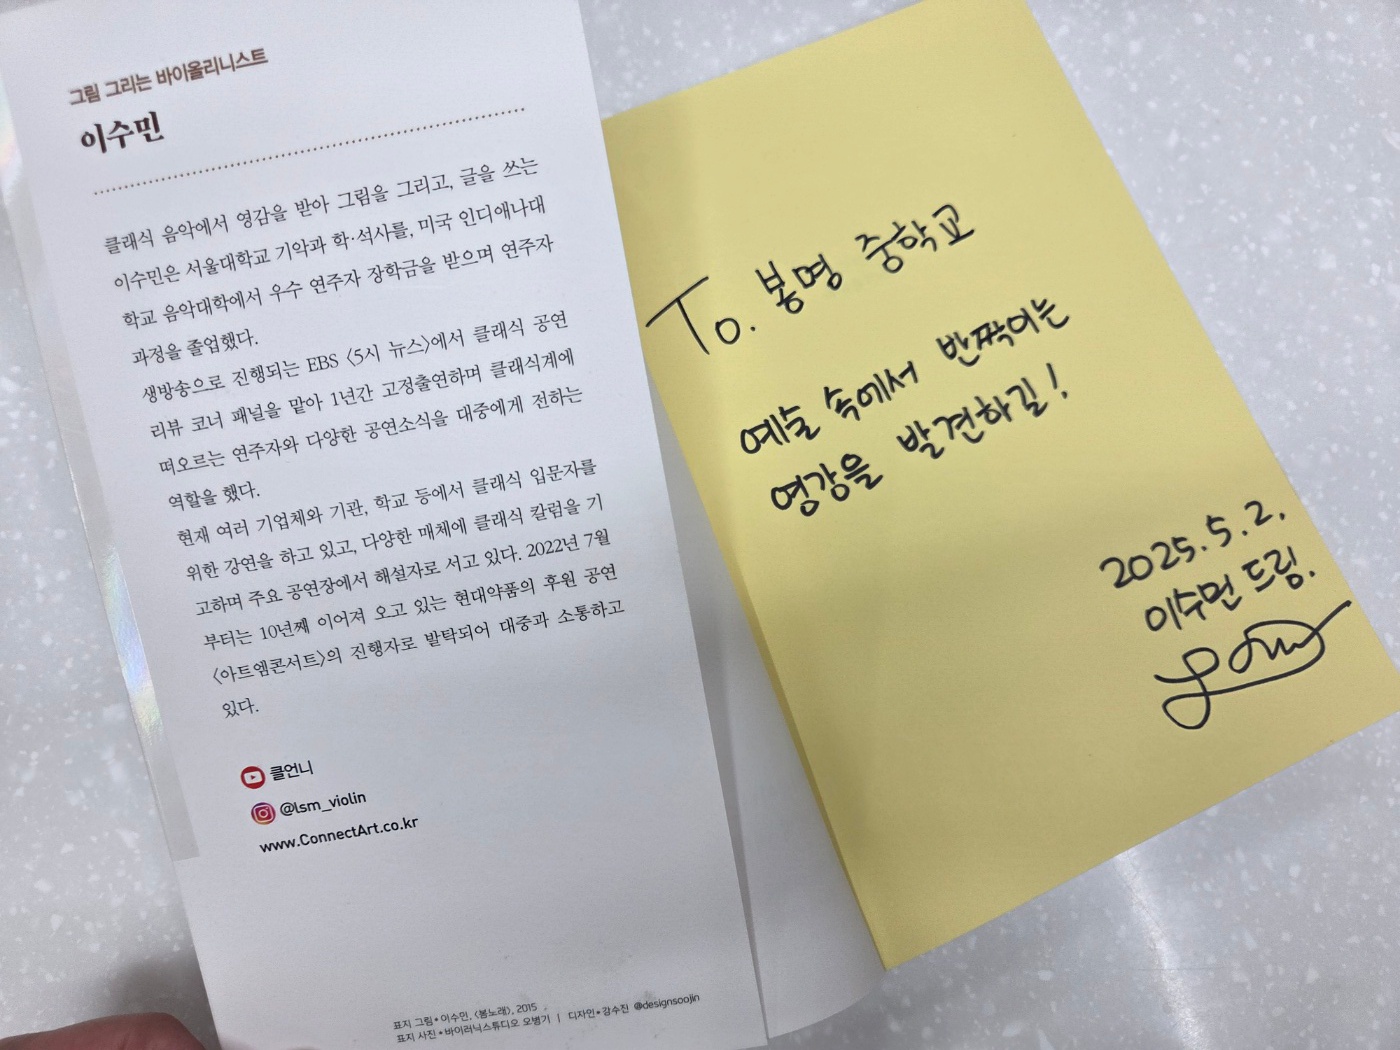 그림 그리는 바이올리니스트
이수민
클래식 음악에서 영감을 받아 그림을 그리고, 글을 쓰는
이수민은 서울대학교 기악과 학·석사를, 미국 인디애나대
학교 음악대학에서 우수 연주자 장학금을 받으며 연주자
과정을 졸업했다.
생방송으로 진행되는 EBS 〈5시 뉴스〉에서 클래식 공연
리뷰 코너 패널을 맡아 1년간 고정출연하며 클래식계에
떠오르는 연주자와 다양한 공연소식을 대중에게 전하는
역할을 했다.
현재 여러 기업체와 기관, 학교 등에서 클래식 입문자를
위한 강연을 하고 있고, 다양한 매체에 클래식 칼럼을 기
고하며 주요 공연장에서 해설자로 서고 있다. 2022년 7월
부터는 10년째 이어져 오고 있는 현대약품의 후원 공연
〈아트엠콘서트〉의 진행자로 발탁되어 대중과 소통하고
있다.
클언니
@lsm_violin
www.ConnectArt.co.kr
표지 그림 • 이수민, 〈봄노래〉, 2015
표지 사진 • 바이러닉스튜디오 오병기 | 디자인 • 강수진 @designsoojin
To. 봉명 중학교
예술 속에서 반짝이는
영감을 발견하길!
2025.5.2.
이수민 드림.